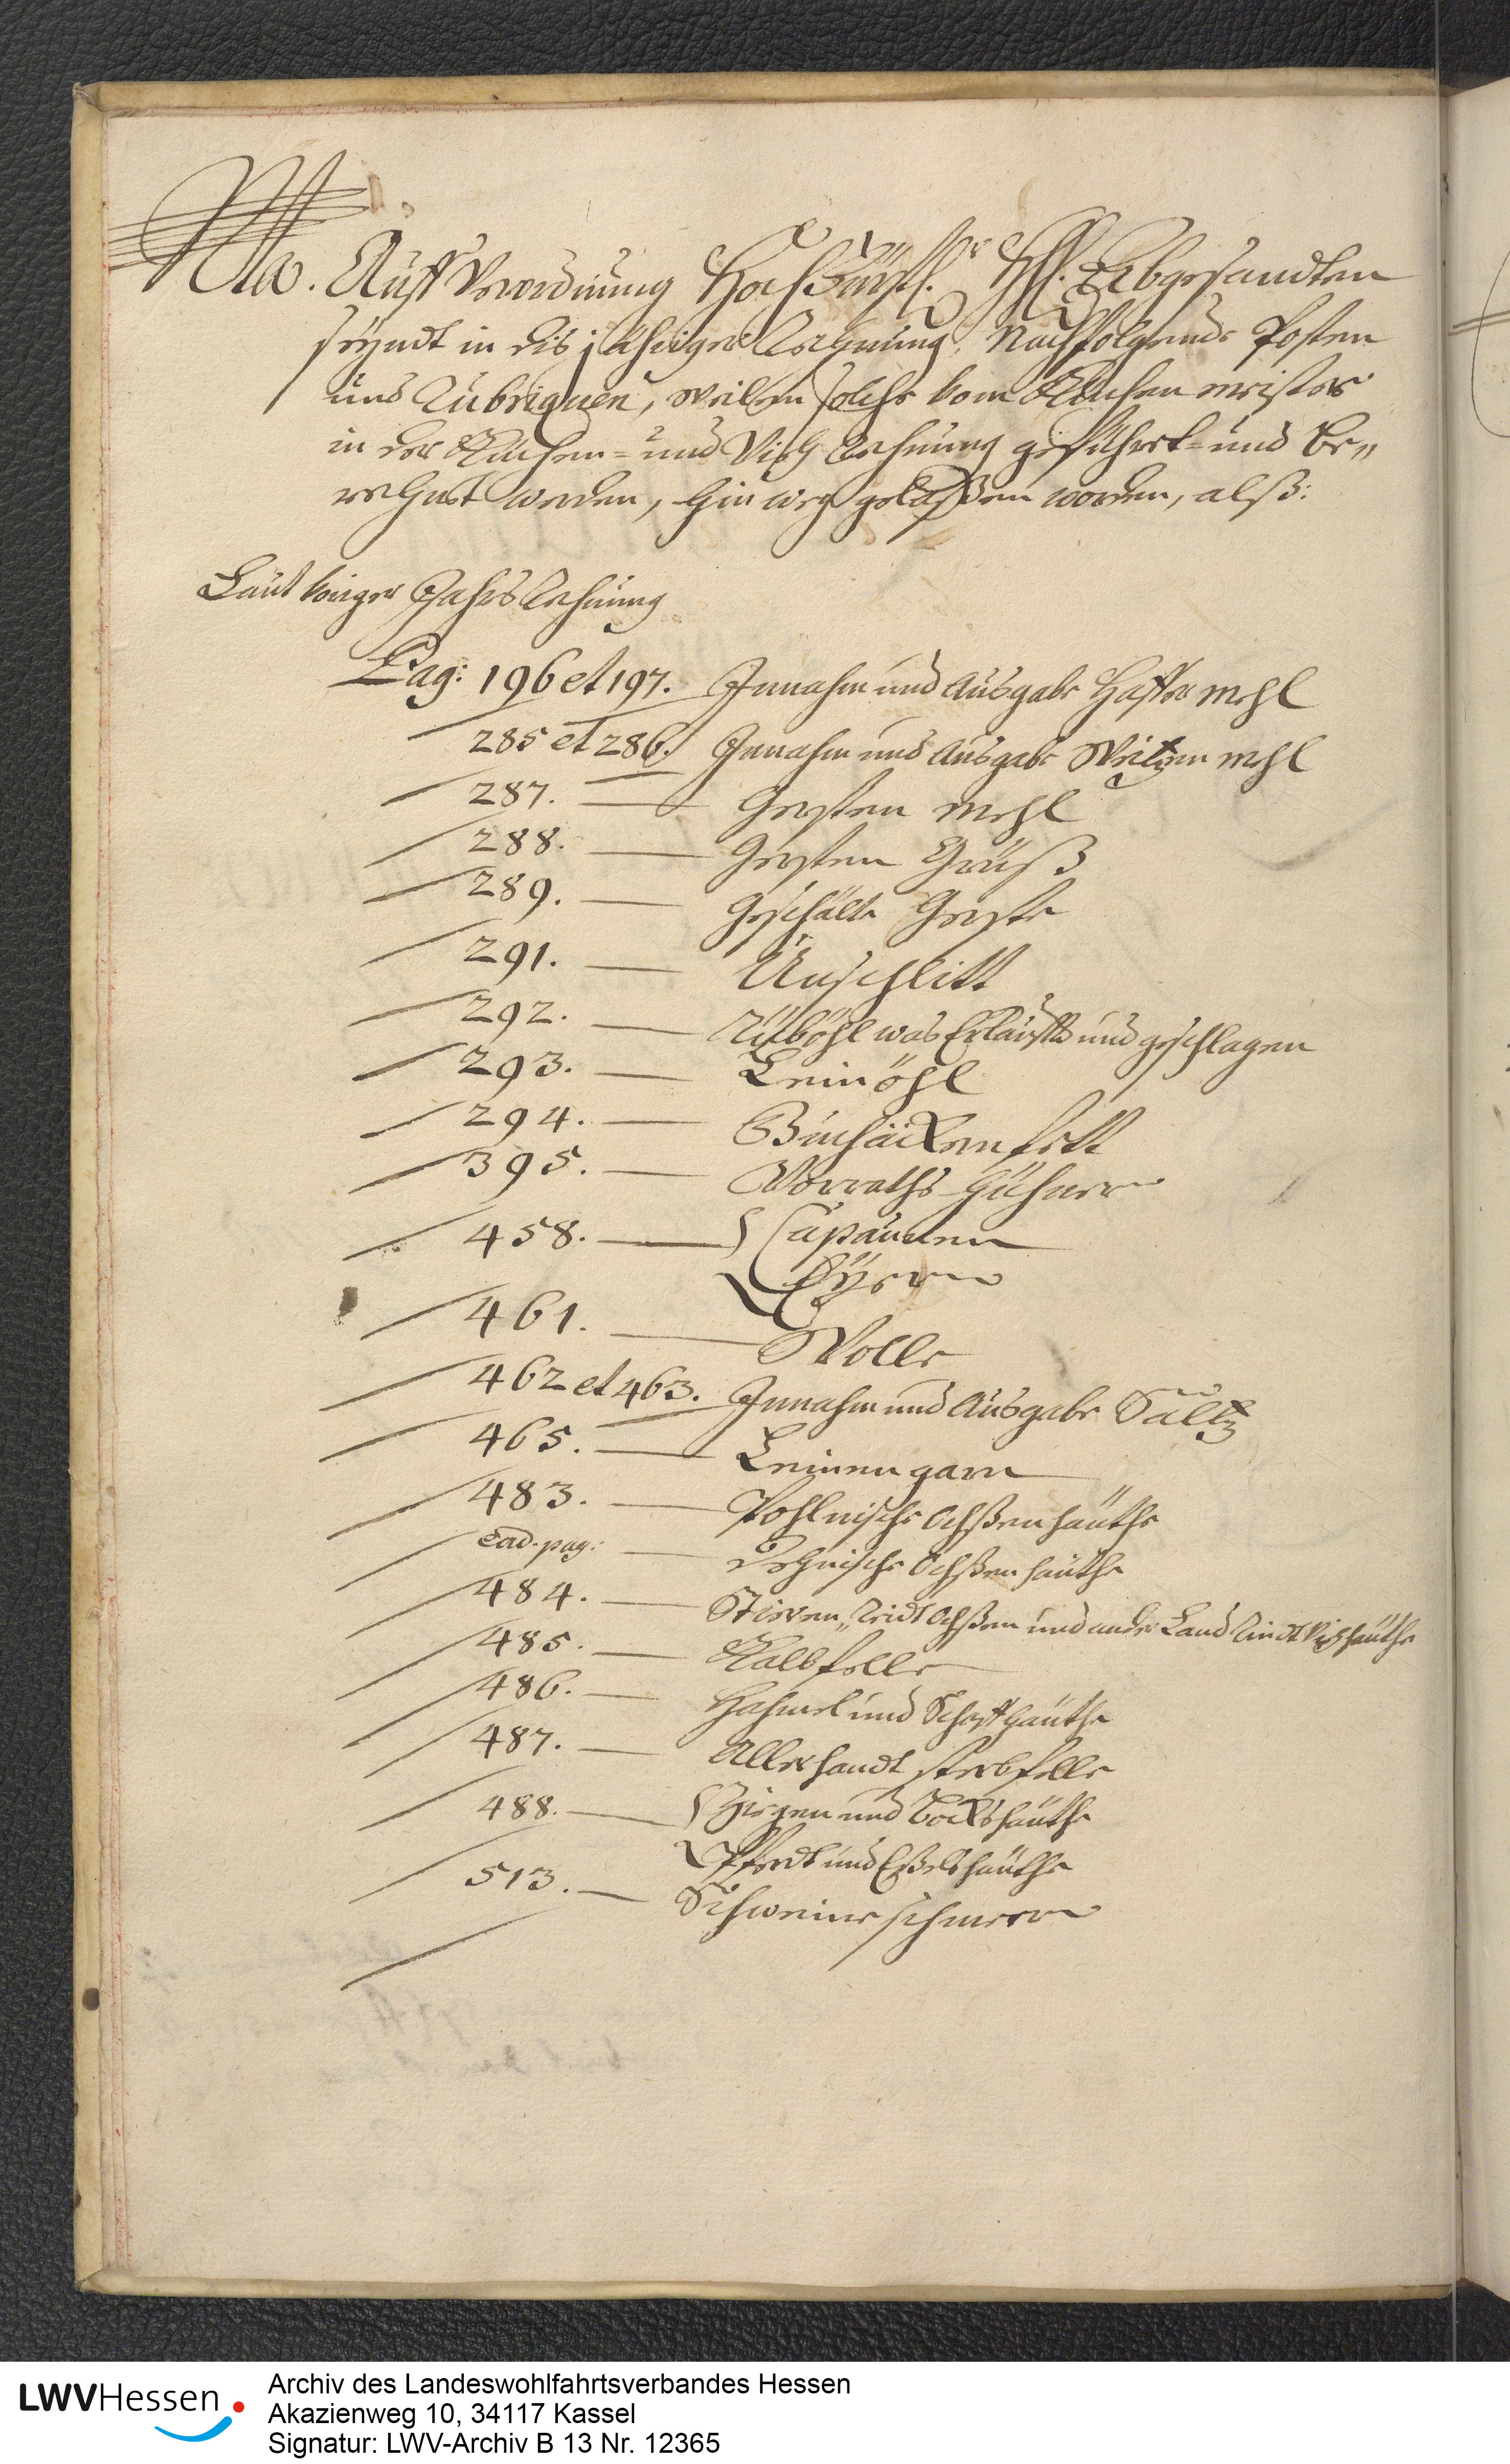 Na. Auff Verordnung HochFürstl. HH. Abgesandten
seyndt in dis jähriger Rechnung, Nachfolgende Posten
und Rubriquen, weilen solche vom Küchenmeister
in der Küchen- und Vieh Rechnung geführet- und be„
rechnet werden, hinweg gelaßen worden, alß:
Laut voriger Jahrs Rechnung
Pag: 196 et 197. Innahm und Ausgabe Haffer Mehl
285 et 286. Innahm und Ausgabe Weitzen Mehl
287. Gersten Mehl
288. Gersten Grüß
289. Geschälte Gerste
291. Unschlitt
292. Rüböhl was Erkaufft und geschlagen
293. Leinöhl
294. Buchäckern fett
395. Vorraths Hühner
458. Capaunen
Eyer
461. Wolle
462 et 463. Innahm und Ausgabe Saltz
465. Leinengarn
483. Pohlnische Ochßen häuthe
ead. pag: Zehnische Ochßen häuthe
484. Stieren„ Ochßen und ander Land Rindt Vieh häuthe
485. Kalbfelle
486. Hahmel und Schaff häuthe
487. Allerhandt sterbfelle
488. Ziegen und Bockshäuthe
Pferdt und Eßelshäuthe
513. Schweine schmeer
LWVHessen
Archiv des Landeswohlfahrtsverbandes Hessen
Akazienweg 10, 34117 Kassel
Signatur: LWV-Archiv B 13 Nr. 12365